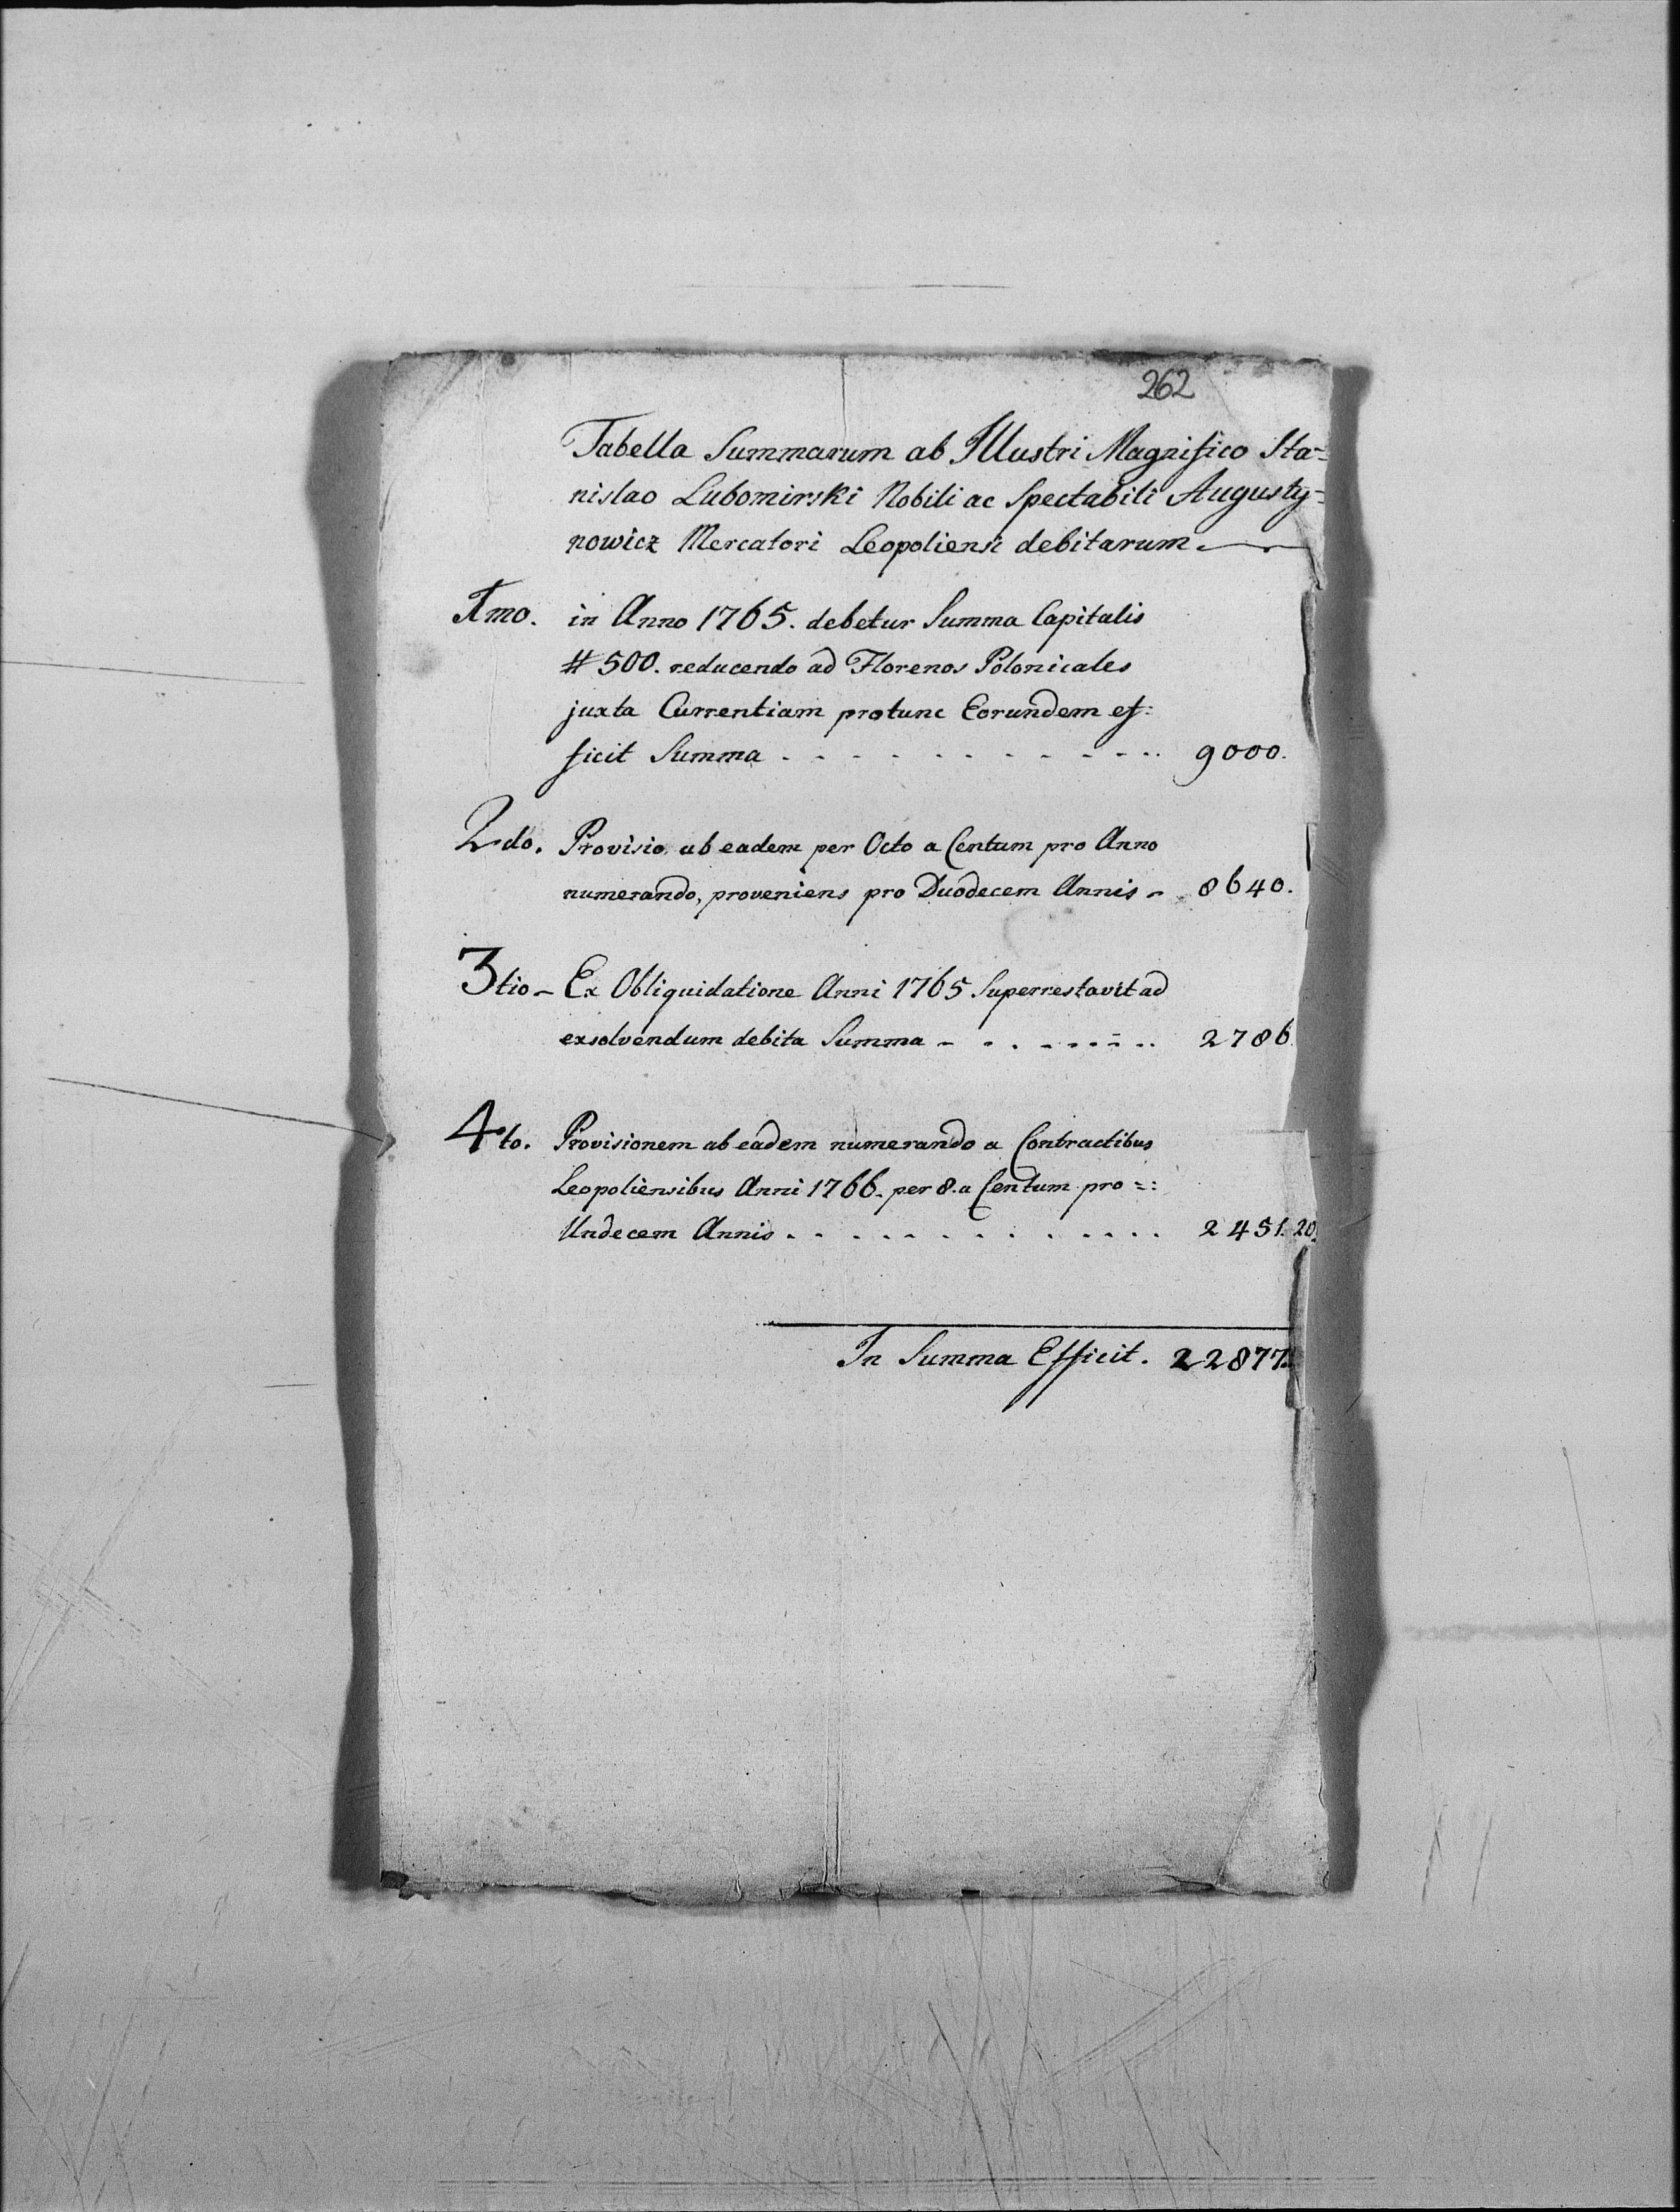 262
Tabella Summarum ab Illustri Magnifico Sta=
nislao Lubomirski Nobili ac Spectabili Augusty=
nowicz Mercatori Leopoliensi debitarum.
Imo. in Anno 1765. debetur Summa Capitalis
# 500. reducendo ad Florenos Polonicales
juxta Currentiam protunc Eorundem ef:
ficit Summa . . . . . . . . . . . . 9000.
2do. Provisio ab eadem per Octo a Centum pro Anno
numerando, proveniens pro Duodecem Annis - 8640.
3tio - Ex Obliquidatione Anni 1765 Superrestavit ad
exsolvendum debita Summa - . . . . . . . 2786.
4to. Provisionem ab eadem numerando a Contractibus
Leopoliensibus Anni 1766. per 8. a Centum pro =:
Undecem Annis . . . . . . . . . . . . . 2451. 20.
In Summa Efficit. 22877.